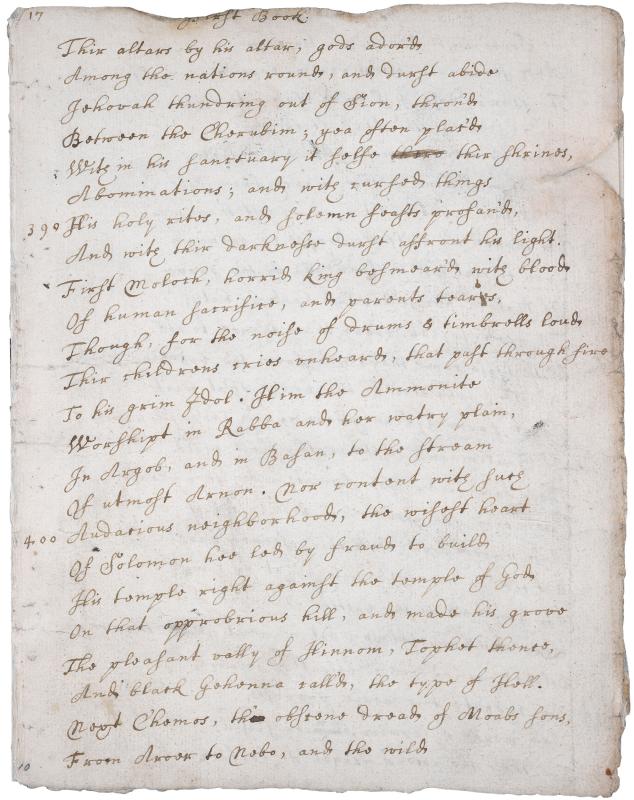 17 First Book.
Thir altars by his altar, gods ador'd
Among the nations round, and durst abide
Jehovah thundring out of Sion, thron'd
Between the Cherubim; yea often plac'd
Within his sanctuary it selfe thir shrines,
Abominations; and with cursed things
390 His holy rites, and solemn feasts profan'd,
And with thir darknesse durst affront his light.
First Moloch, horrid king besmear'd with blood
Of human sacrifice, and parents teares,
Though, for the noise of drums & timbrells loud
Thir childrens cries unheard, that past through fire
To his grim Idol. Him the Ammonite
Worshipt in Rabba and her watry plain,
In Argob, and in Basan, to the stream
Of utmost Arnon. Nor content with such
400 Audacious neighborhood, the wisest heart
Of Solomon hee led by fraud to build
His temple right against the temple of God
On that opprobrious hill, and made his grove
The pleasant vally of Hinnom, Tophet thence,
And black Gehenna call'd, the type of Hell.
Next Chemos, the obscene dread of Moabs sons,
From Aroer to Nebo, and the wild